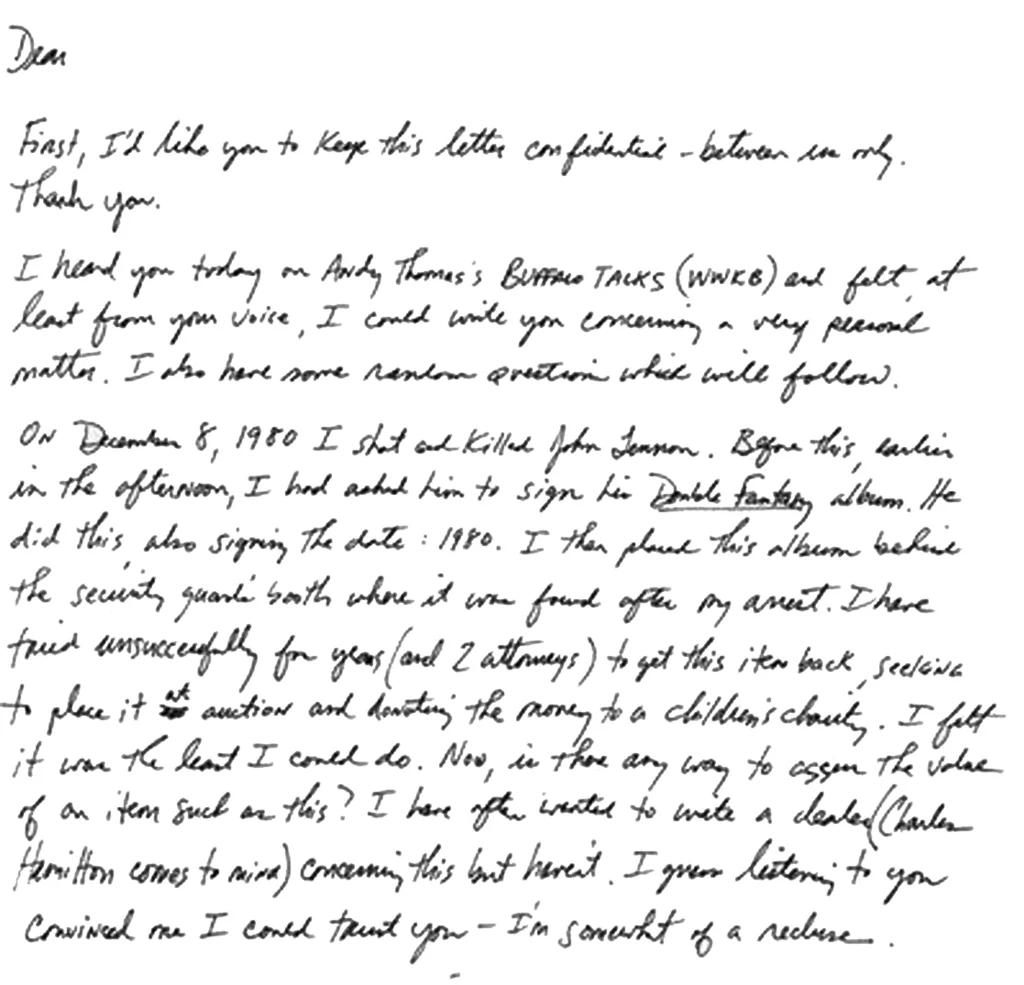 Dear
First, I'd like you to keep this letter confidential – between us only.
Thank you.
I heard you today on Andy Thomas's BUFFALO TALKS (WWKB) and felt, at
least from your voice, I could write you concerning a very personal
matter. I also have some random questions which will follow.
On December 8, 1980 I shot and killed John Lennon. Before this, earlier
in the afternoon, I had asked him to sign his Double Fantasy album. He
did this, also signing the date: 1980. I then placed this album behind
the security guard's booth where it was found after my arrest. I have
tried unsuccessfully for years (and 2 attorneys) to get this item back, seeking
to place it at auction and donating the money to a children's charity. I felt
it was the least I could do. Now, is there any way to assess the value
of an item such as this? I have often wanted to write a dealer (Charles
Hamilton comes to mind) concerning this but haven't. I guess listening to you
convinced me I could trust you – I'm somewhat of a recluse.